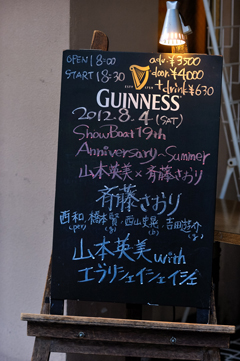 OPEN 18:00
START 18:30
adv. ¥3500
door. ¥4000
+drink ¥630
GUINNESS
2012.8.4 (SAT)
ShowBoat 19th
Anniversary~Summer
山本英美 × 斉藤さおり
斉藤さおり
西和 橋本賢 西山史晃 吉田遊介
(per) (g) (b)
山本英美 with
エヴリシェイシェイシェ